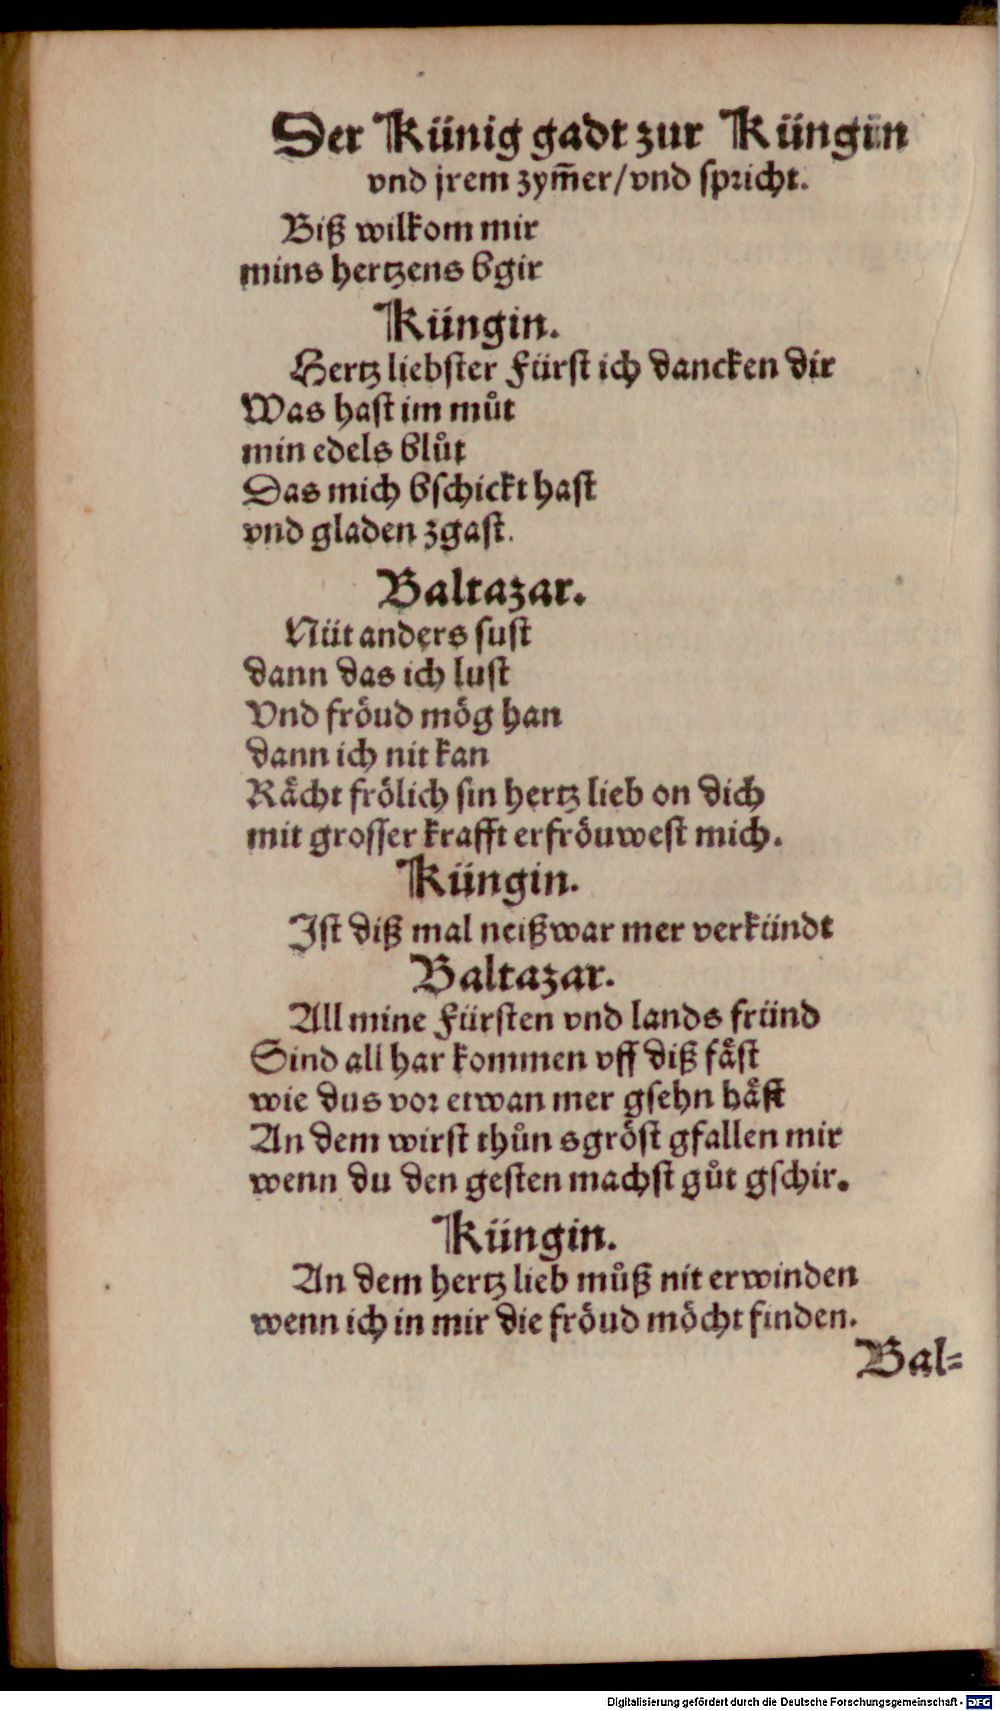 Der Künig gadt zur Küngin
vnd jrem zym̃er/vnd spricht.
Biß wilkom mir
mins hertzens bgir
Küngin.
Hertz liebster Fürst ich dancken dir
Was hast im můt
min edels blůt
Das mich bschickt hast
vnd gladen zgast.
Baltazar.
Nüt anders sust
dann das ich lust
Vnd fröud mög han
dann ich nit kan
Rächt frölich sin hertz lieb on dich
mit grosser krafft erfröuwest mich.
Küngin.
Ist diß mal neißwar mer verkündt
Baltazar.
All mine Fürsten vnd lands fründ
Sind all har kommen vff diß fäst
wie dus vor etwan mer gsehn häst
An dem wirst thůn sgröst gfallen mir
wenn du den gesten machst gůt gschir.
Küngin.
An dem hertz lieb můß nit erwinden
wenn ich in mir die fröud möcht finden.
Bal=
Digitalisierung gefördert durch die Deutsche Forschungsgemeinschaft - DFG